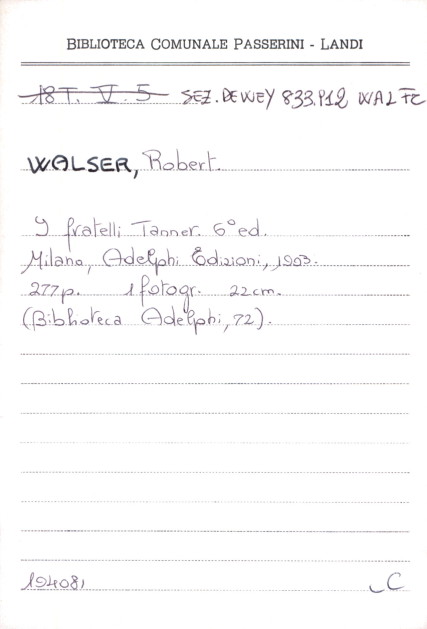 BIBLIOTECA COMUNALE PASSERINI - LANDI
18 T. V. 5 SEZ. DEWEY 833.912 WAL FC
WALSER, Robert.
I fratelli Tanner. 6° ed.
Milano, Adelphi Edizioni, 1993.
277 p. 1 fotogr. 22 cm.
(Biblioteca Adelphi, 72).
194081
C